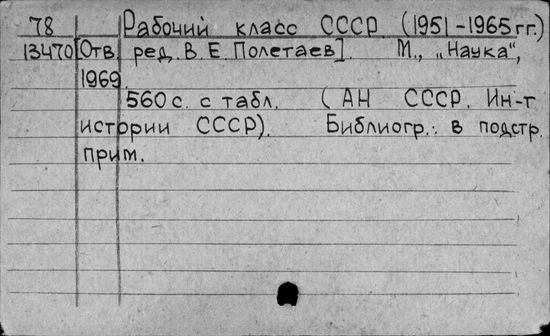 78 Рабочий класс СССР (1951-1965 гг.)
13470 [Отв. ред. В. Е. Полетаев]. М., „Наука“,
1969.
560 с. с табл. (АН СССР. Ин-т
истории СССР). Библиогр.: в подстр.
прим.